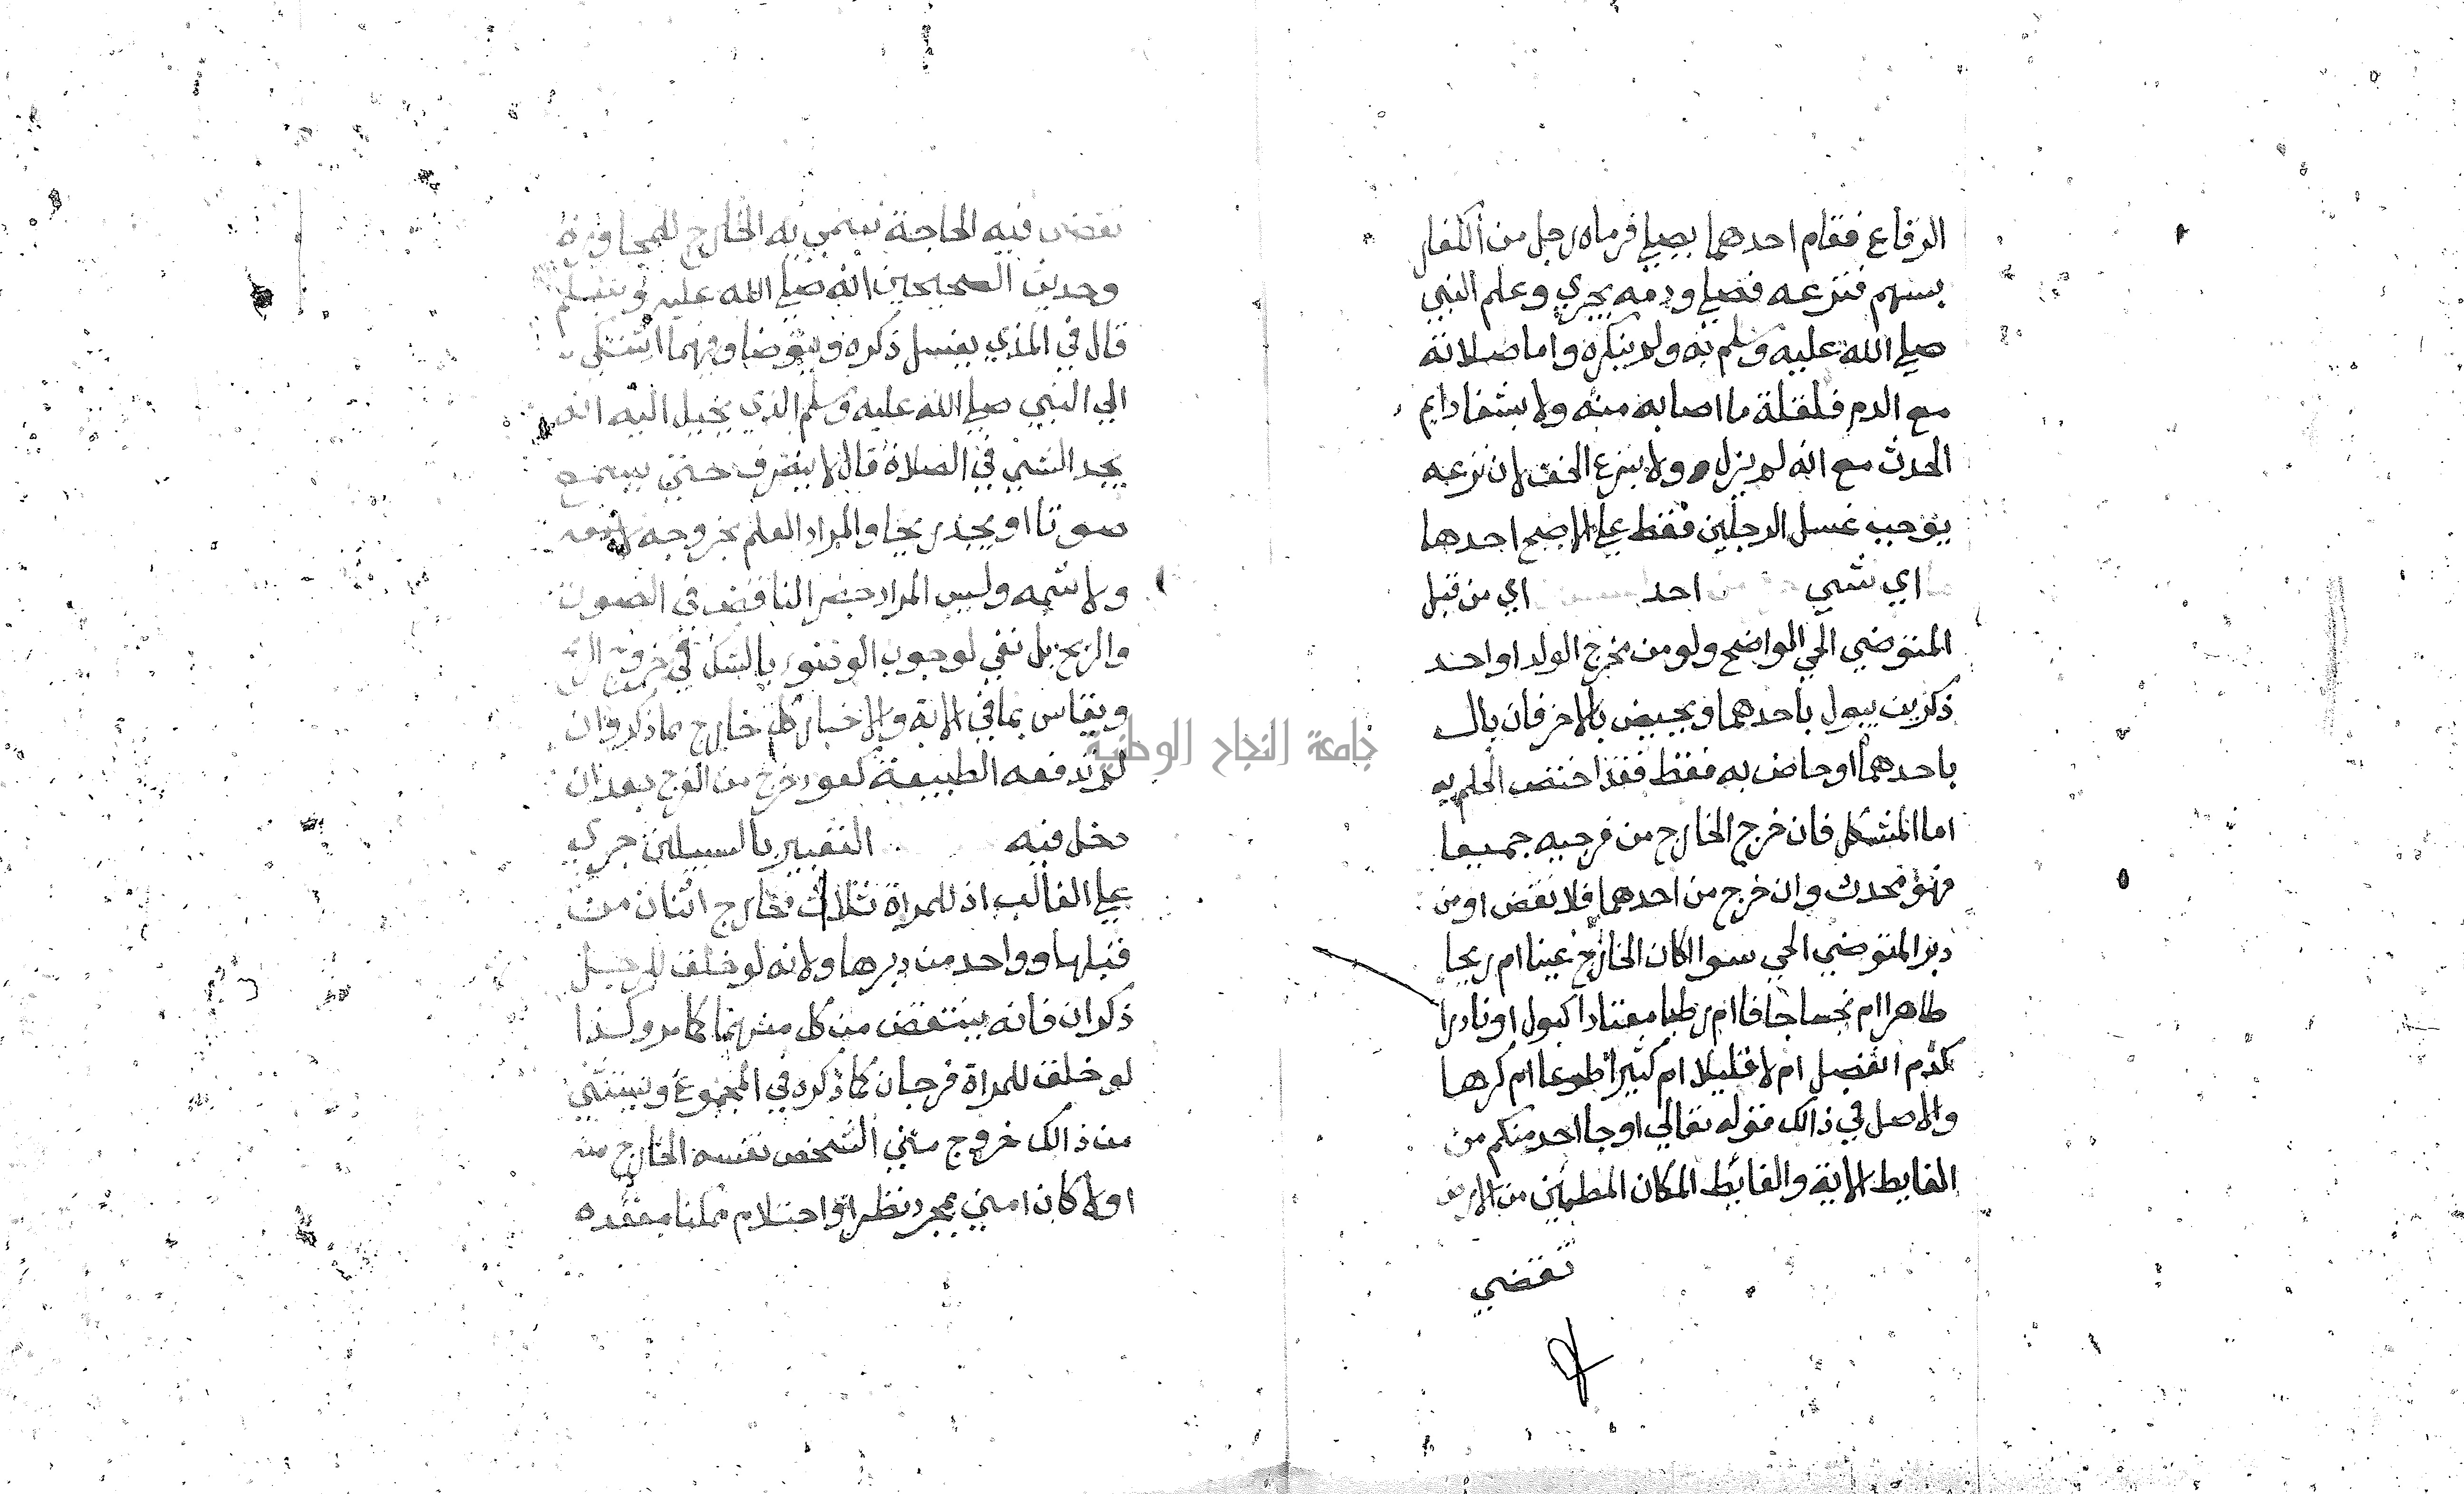 الرقاع فقام احدهما يصلي فرماه رجل من الكفار
بسهم فنزعه فصلي ودمه يجري وعلم النبي
صلي الله عليه وسلم به ولم ينكره واما صلاته
مع الدم فلقلة ما اصابه منه ولا بشفا دايم
الحدث مع انه لم يزل ولا بنزع الخف لان نزعه
يوجب غسل الرجلين فقط علي الاصح احدها
اي شي احد اي من قبل
المتوضي الحي الواضح ولو من مخرج الولد او احد
ذكرين يبول باحدهما ويحيض بالاخر فان بال
باحدهما او حاض به فقط فقد اختص الحكم به
اما المشكل فان خرج الخارج من فرجيه جميعا
فهو محدث وان خرج من احدهما فلا نقض او من
دبر المتوضي الحي سوا اكان الخارج عينا ام ريحا
طاهرا ام نجسا جافا ام رطبا معتادا كبول او نادرا
كدم انفصل ام لا قليلا ام كثيرا طوعا ام كرها
والاصل في ذالك قوله تعالي او جا احد منكم من
الغايط الاية والغايط المكان المطمين من الارض
تقضي
تقضي فيه الحاجة سمي به الخارج للمجاورة
وحديث الصحيحين انه صلي الله عليه وسلم
قال في المذي يغسل ذكره ويتوضا وفيهما اشتكي
الي النبي صلي الله عليه وسلم الذي يخيل اليه انه
يجد الشي في الصلاة قال لا ينصرف حتي يسمع
صوتا او يجد ريحا والمراد العلم بخروجه لا سمعه
ولا شمه وليس المراد حصر الناقض في الصوت
والريح بل نفي لوجوب الوضو بالشك في خروج الريح
ويقاس بما في الاية والاخبار كل خارج مما ذكر وان
لم تدفعه الطبيعة كعود خرج من الفرج بعد ان
دخل فيه التعبير بالسبيلين جري
علي الغالب اذ للمراة ثلاث مخارج اثنان من
قبلها وواحد من دبرها ولانه لو خلق للرجل
ذكران فانه ينتقض من كل منهما كما مر وكذا
لو خلق للمراة فرجان كما ذكره في المجموع ويستثني
من ذالك خروج مني الشخص نفسه الخارج منه
اولا كان امني بمجرد نظر او احتلام ممكنا مقعده
جامعة النجاح الوطنية